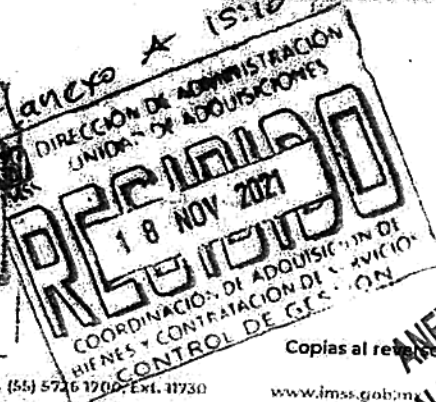 anexo A 15:10
DIRECCIÓN DE ADMINISTRACIÓN
UNIDAD DE ADQUISICIONES
RECIBIDO
18 NOV 2021
COORDINACIÓN DE ADQUISICIÓN DE
BIENES Y CONTRATACIÓN DE SERVICIOS
CONTROL DE GESTIÓN
Copias al reverso
(55) 5726 1700, Ext. 11730
www.imss.gob.mx